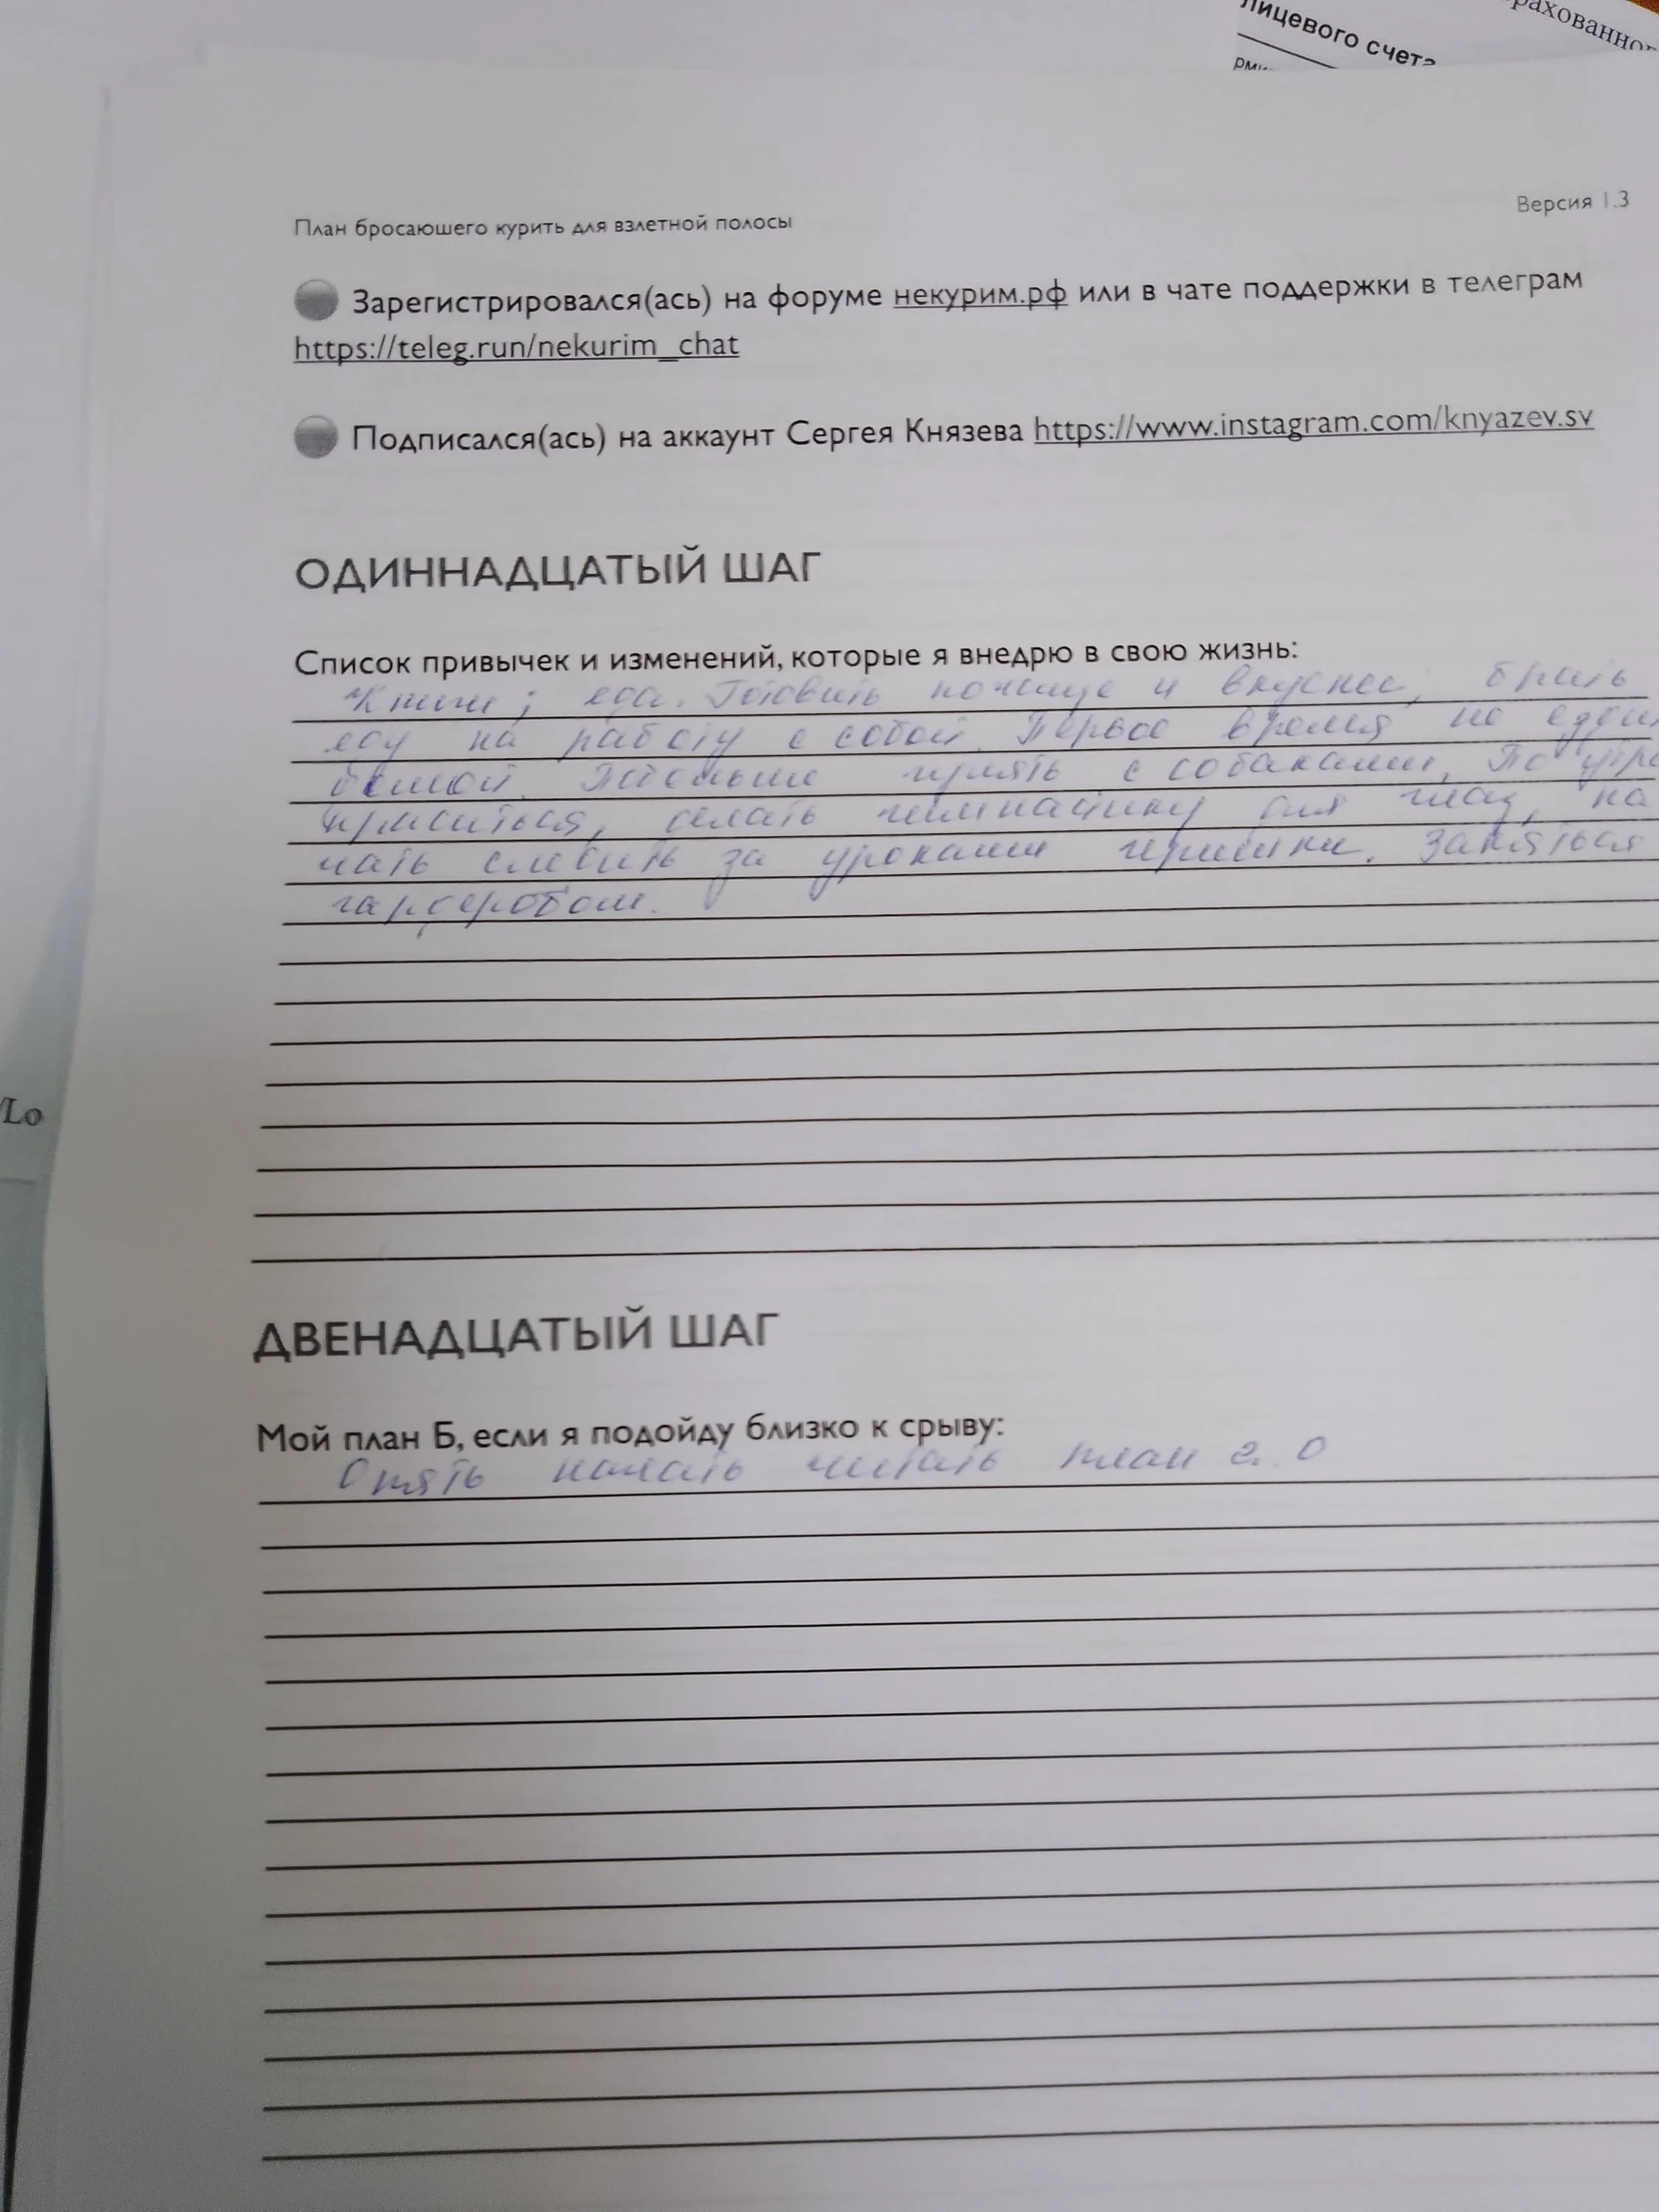 лицевого счета
План бросаюшего курить для взлетной полосы
Версия 1.3
Зарегистрировался(ась) на форуме некурим.рф или в чате поддержки в телеграм
https://teleg.run/nekurim_chat
Подписался(ась) на аккаунт Сергея Князева https://www.instagram.com/knyazev.sv
ОДИННАДЦАТЫЙ ШАГ
Список привычек и изменений, которые я внедрю в свою жизнь:
Книги; еда. Готовить почаще и вкуснее, брать
еду на работу с собой. Первое время не
домой. Подольше гулять с собаками. По
краситься, делать гимнастику для глаз, на
чать следить за уроками Гришки. Заняться
гардеробом.
/Lo
ДВЕНАДЦАТЫЙ ШАГ
Мой план Б, если я подойду близко к срыву:
Опять начать читать план с 0